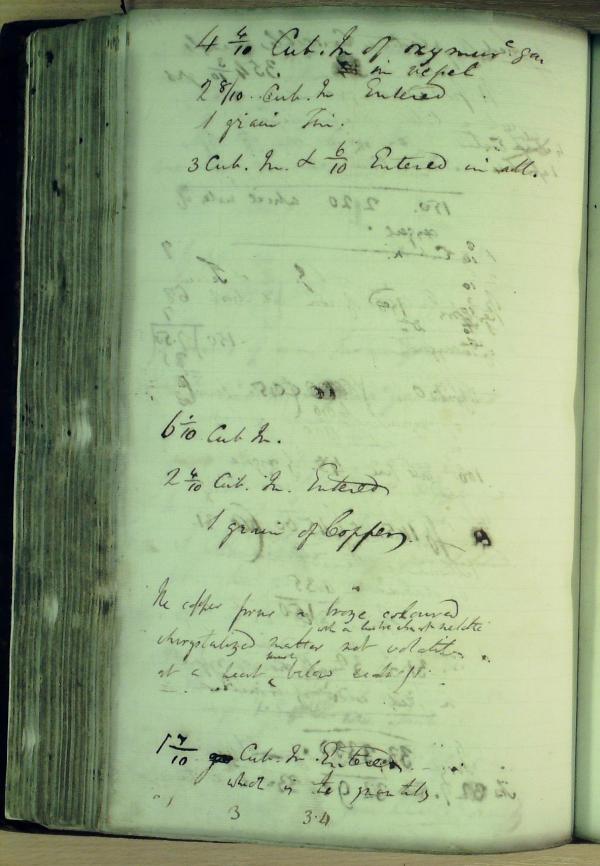 4 4/10 Cub. In of oxymurc. gas
in vepel
2 8/10 Cub. In Entered
1 grain Tin.
3 Cub. In. & 6/10 Entered in all.
6 1/10 Cub In.
2 4/10 Cub. In. Entered
1 grain of Copper.
The copper forms a bronze coloured
with a lustre almost metallic
chrystalized matter not volatile
at a heat much below
1 7/10 Cub. In Entered
which is the quantity.
3 3.4